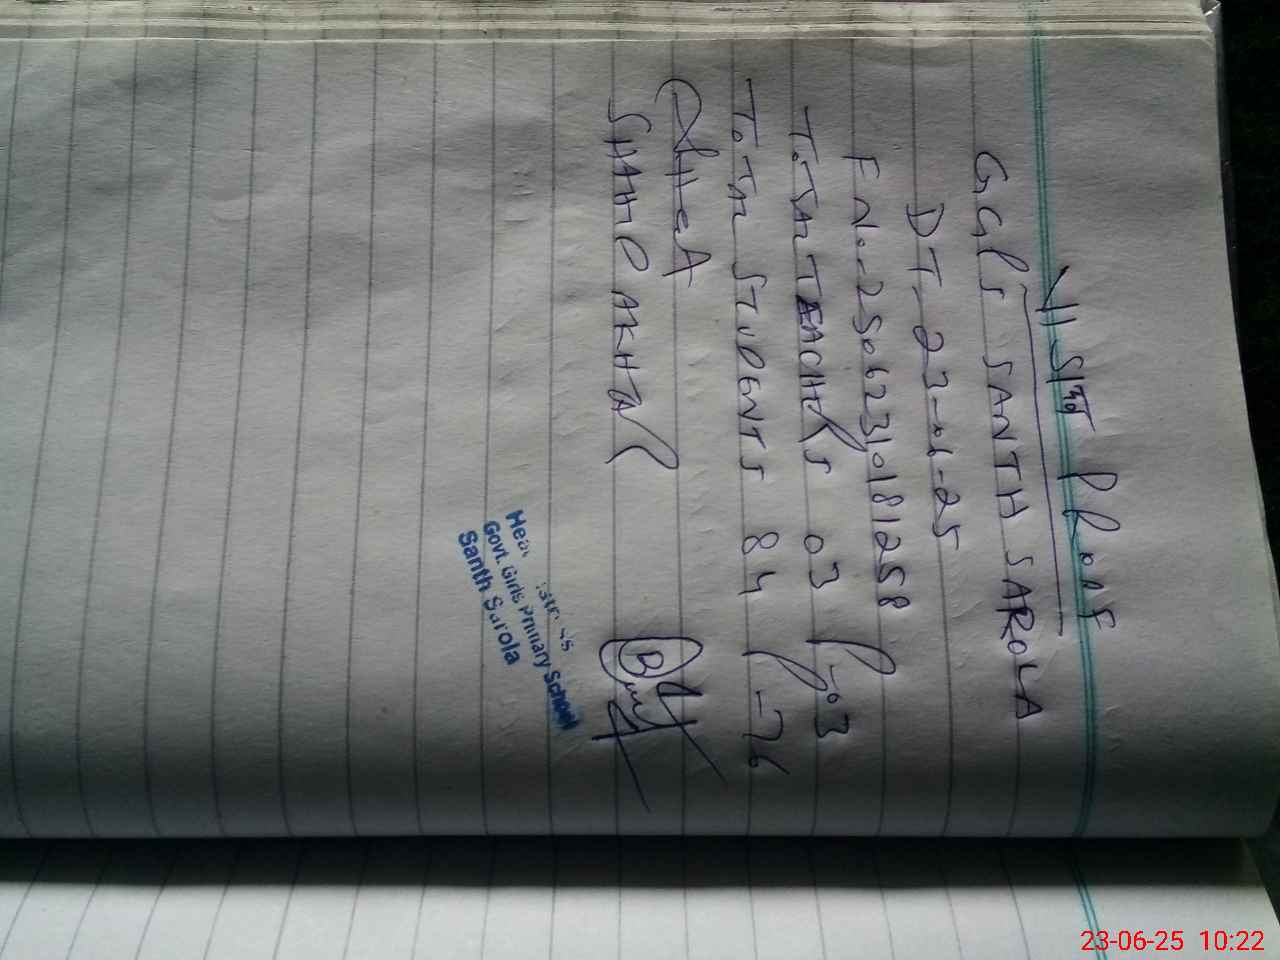 VISIT PROOF
GGPS SANTH SAROLA
DT-23-06-25
F No-25062310181258
TOTAL TEACHERS 03 P-03
TOTAL STUDENTS 84 P-76
SHAHID AKHTAR
Govt. Girls Primary School
Santh Sarola
23-06-25 10:22